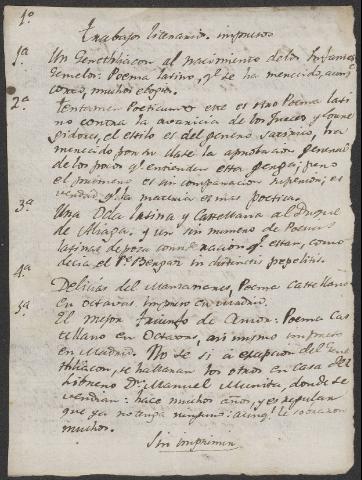 1º
Trabajos literarios impresos
1ª Un Genethliacon al nacimiento de los Infantes
Gemelos: Poema latino, qe se ha merecido, aunq
corto, muchos elogios.
2ª Tentamen Poeticum este es otro Poema lati
no contra la avaricia de los Jueces y
el estilo es del genero satirico, ha
merecido por su parte la aprobacion general
de los pocos qe entienden esta gerga; pero
el primero es sin comparacion superior; es
verdad qe la materia es mas poetica.
3ª Una Oda latina y Castellana al Duque
de y un sin numero de Poesias
latinas de poca qe estan, como
decia el Pe in distinctis
4ª Delicias del Manzanares, Poema Castellano
en octavas impreso en Madrid.
5ª El mejor triunfo de Amor: Poema Cas
tellano en Octavas, asi mismo impreso
en Madrid. No se si á excepcion del Gene
thliacon, se hallaran los otros en Casa del
Librero Dn Manuel donde se
vendian: hace muchos años, y es regular
que ya no tenga ninguno: aunqe le sobraron
muchos.
Sin imprimir